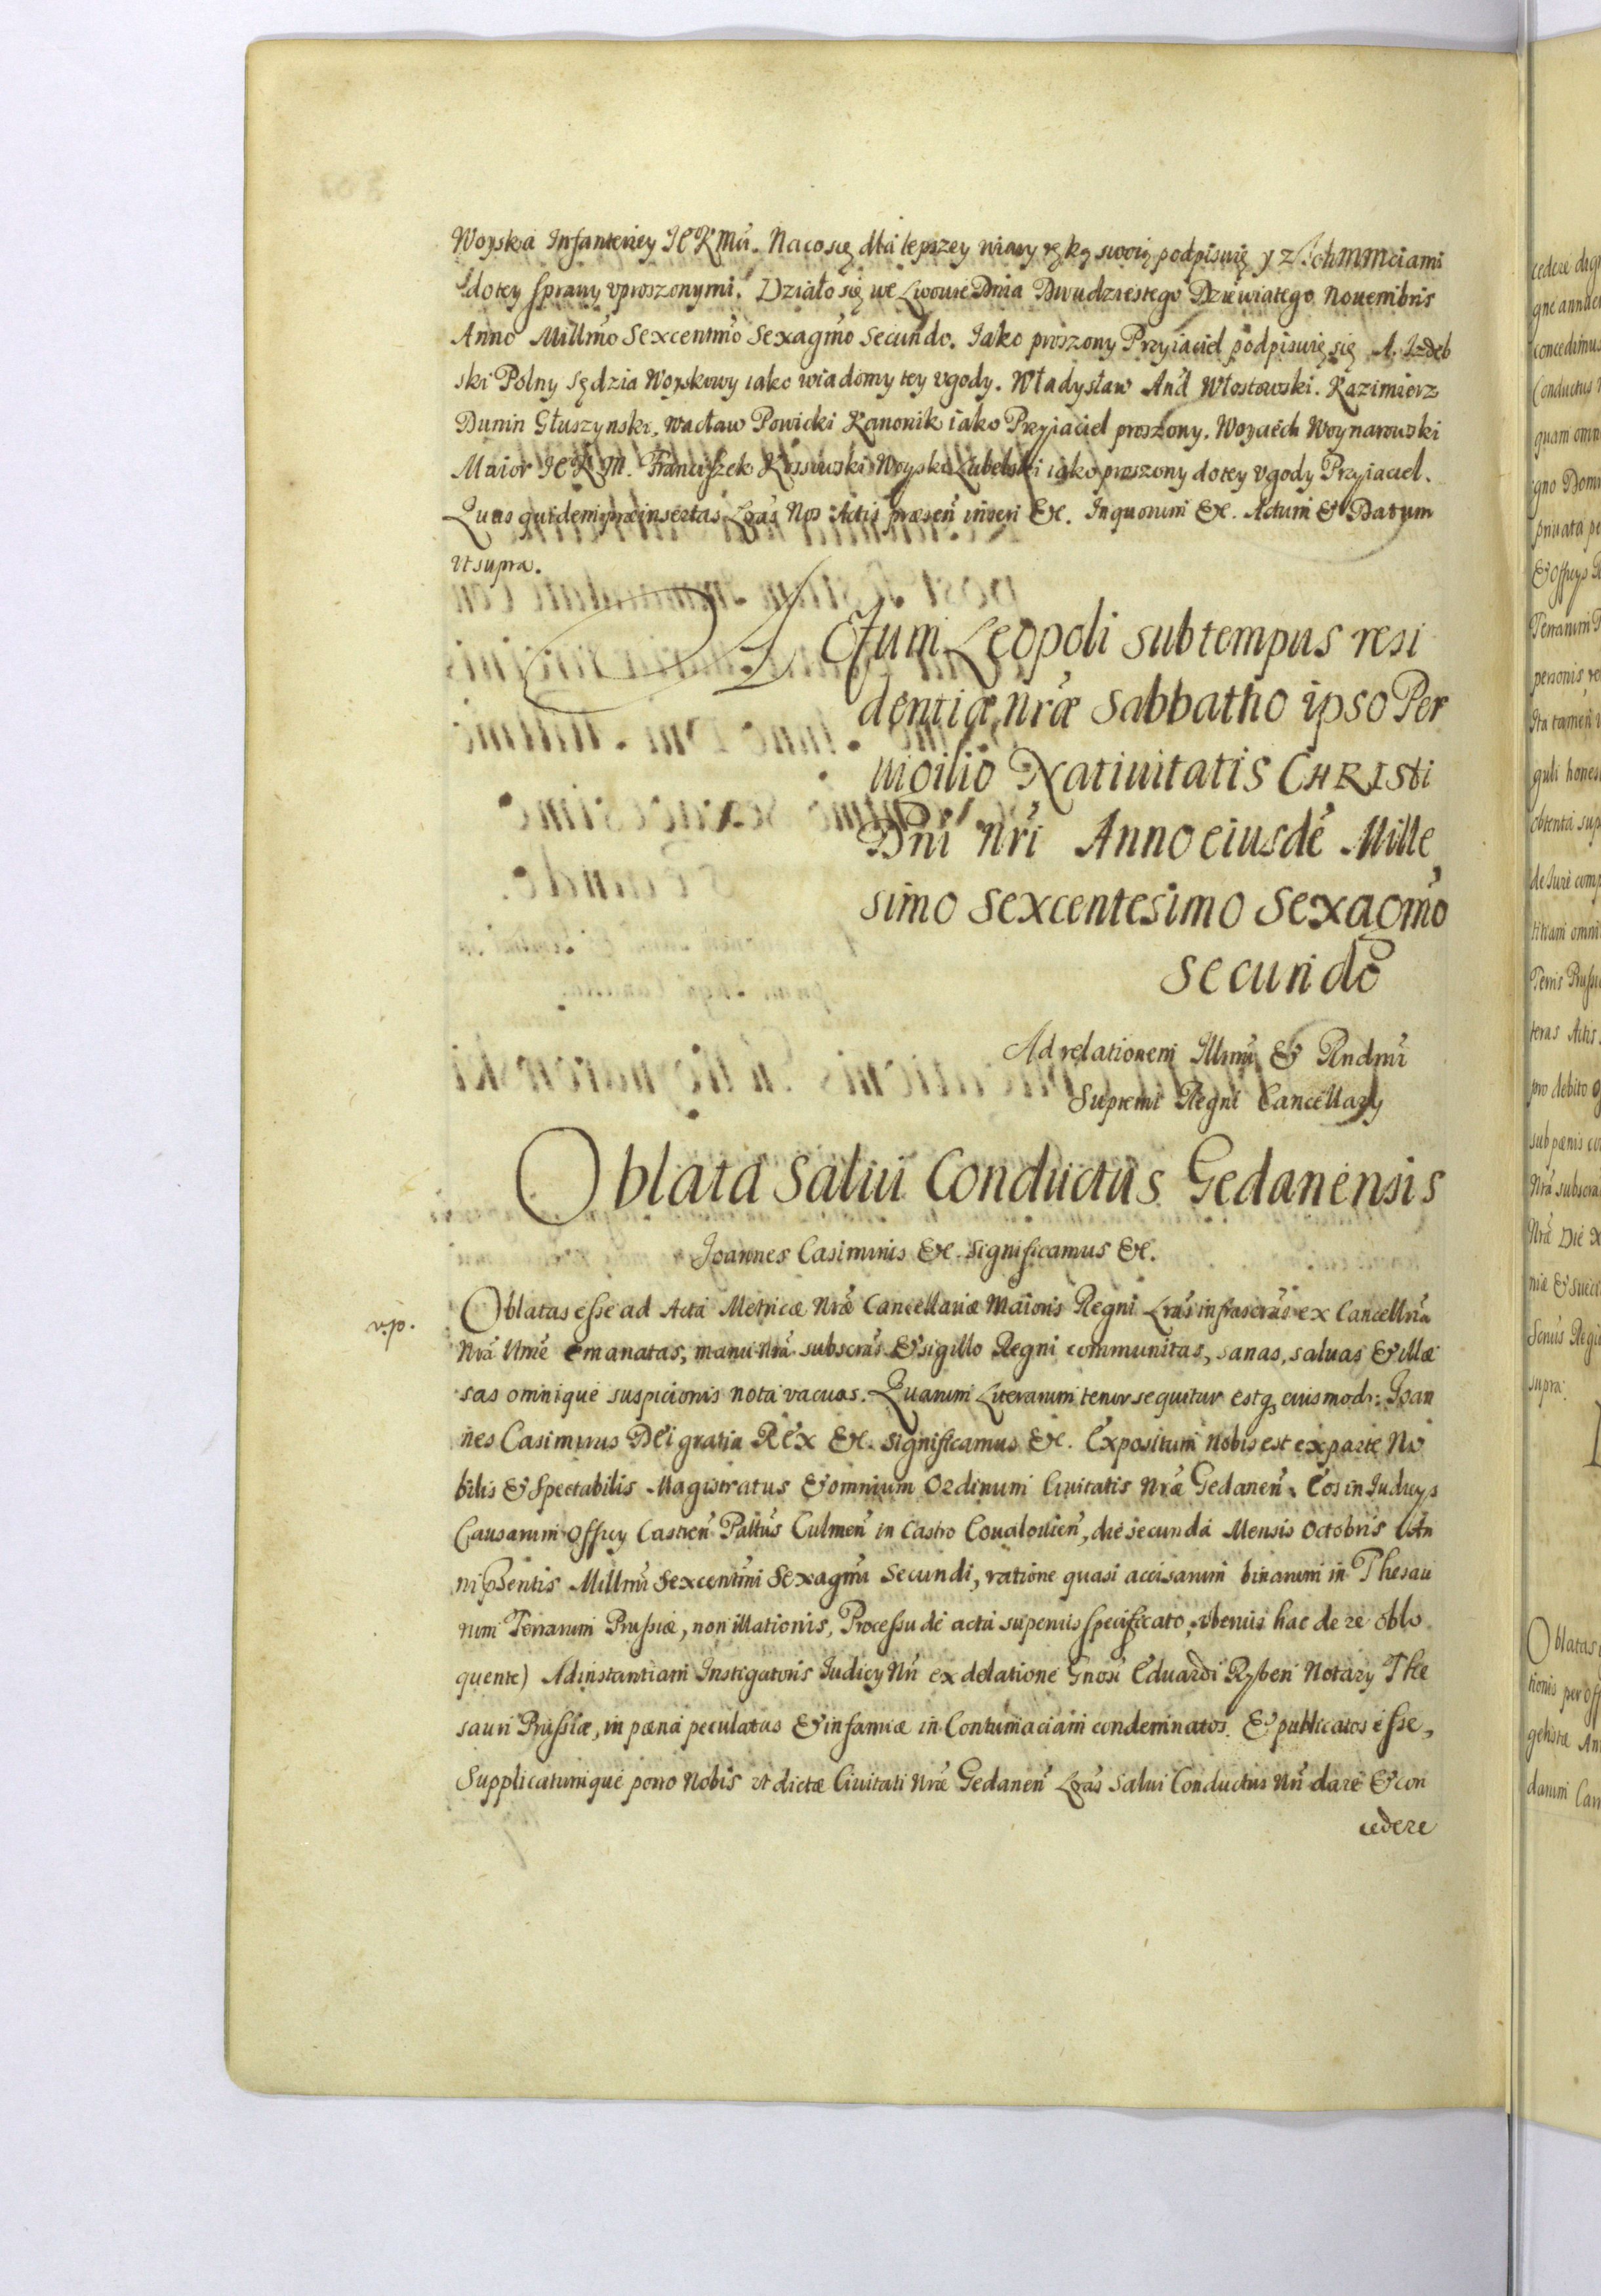 Woyska Infanteriey JEKMči. Na co się dla lepszey wiary ręką swoią podpisuię y z Ichmmciami
do tey sprawy vproszonymi. Działo się we Lwowie Dnia Dwudziestego Dziewiatego Nouembris
Anno Millmo Sexcentmo Sexagmo Secundo. Iako proszony Przyiaciel podpisuię się A. Izdeb
ski Polny Sędzia Woyskowy iako wiadomy tey vgody. Władysław And Włostowski. Kazimierz
Dunin Głuszynski, Wacław Powicki Kanonik iako Przyiaciel proszony. Woyciech Woynarowski
Maior JEKM. Franciszek Kossowski Woyski Lubelski iako proszony do tey vgody Przyiaciel.
Quas quidem præinsertas Lras Nos Actis præsen inseri &c. In quorum &c. Actum & Datum
vt supra.
Actum Leopoli sub tempus resi
dentiæ nræ Sabbatho ipso Per
uigilio Natiuitatis CHRISti
Dni Nri Anno eiusdé Mille
simo Sexcentesimo Sexagmo
Secundo
Ad relationem Illmi & Rndmi
Supremi Regni Cancellarÿ
Oblata Salui Conductus Gedanensis
Joannes Casimirus &c. Significamus &c.
Oblatas esse ad Acta Metricæ Nræ Cancellariæ Maioris Regni Lras infrascras ex Cancellria
Nra Mre emanatas, manu Nra subscras & sigillo Regni communitas, sanas, saluas & illæ
sas omnique suspicionis nota vacuas. Quarum Literarum tenor sequitur estq eiusmodi: Joan
nes Casimirus Dei gratia REX &c. Significamus &c. Expositum Nobis est ex parte No
bilis & Spectabilis Magistratus & omnium Ordinum Ciuitatis Nræ Gedanen. Eos in Iudicÿs
Causarum Officÿ Castren Pallus Culmen in Castro Coualouien, die secunda Mensis Octobris An
ni psentis Millmi Sexcentmi Sexagmi Secundi, ratione quasi accisarum binarum in Thesau
rum Terrarum Prussiæ, non illationis, Processu de actu superius specificato, vberius hac de re oblo
quente) Ad instantiam Instigatoris Iudicÿ Nri ex delatione Gnosi Eduardi Ryben Notarÿ The
sauri Prussiæ, in pæna peculatus & infamiæ in Contumaciam condemnatos & publicatos esse,
Supplicatumque porro Nobis vt dictæ Ciuitati Nræ Gedanen Lras Salui Conductus Nri dare & con
cedere